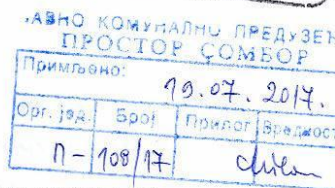 ЈАВНО КОМУНАЛНО ПРЕДУЗЕЋ
ПРОСТОР СОМБОР
Примљено: 19.07.2017.
Орг. јед. Број Прилог Вредност
П- 109/17